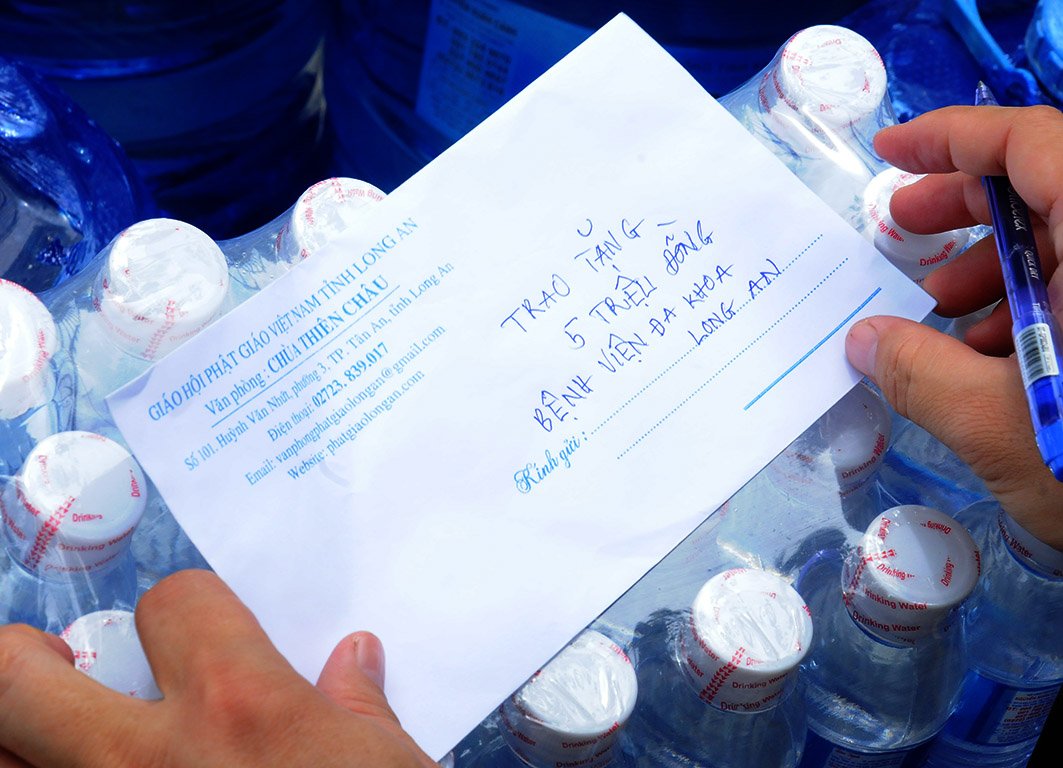 GIÁO HỘI PHẬT GIÁO VIỆT NAM TỈNH LONG AN
Văn phòng : CHÙA THIÊN CHÂU
Số 101, Huỳnh Văn Nhứt, phường 3, TP. Tân An, tỉnh Long An
Điện thoại: 02723, 839.017
Email: vanphongphatgiaolongan@gmail.com
Website: phatgiaolongan.com
TRAO TẶNG
5 TRIỆU ĐỒNG
BỆNH VIỆN ĐA KHOA
LONG AN
Kính gửi :
Drinking Water
Drinking Water
Drinking Water
Drinking Water
Drinking Water
Drinking Water